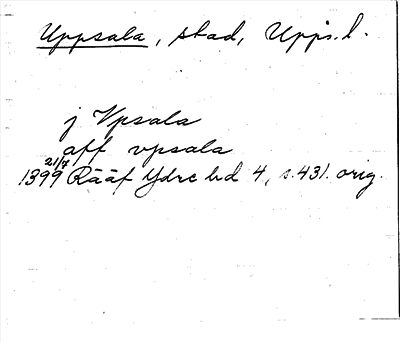 Uppsala, stad, Upps. l.
j Vpsala
aff vpsala
21/7
1399 Rääf Ydre bd 4, s. 431. orig.